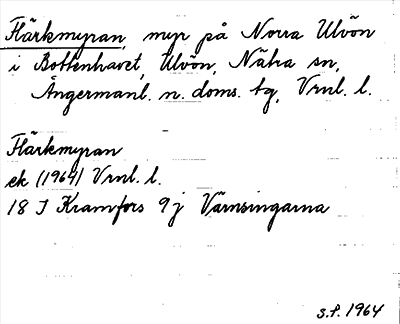 Flärkmyran, myr på Norra Ulvön
i Bottenhavet, Ulvön, Nätra sn,
Ångermanl. n. doms. tg, Vrnl. l.
Flärkmyran
ek (1964) Vrnl. l.
18 I Kramfors 9j Värnsingarna
S.P. 1964